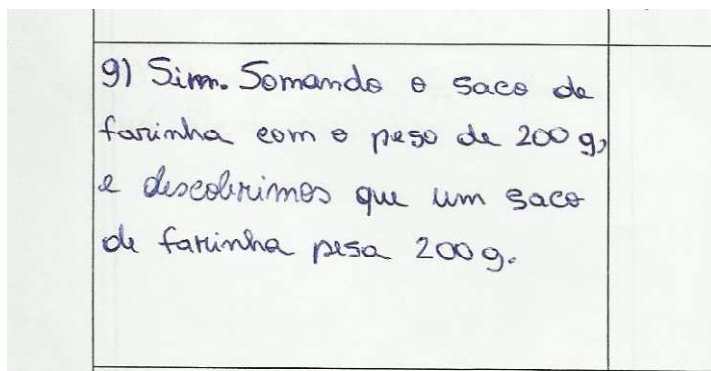 g) Sim. Somando o saco de
farinha com o peso de 200 g,
e descobrimos que um saco
de farinha pesa 200 g.